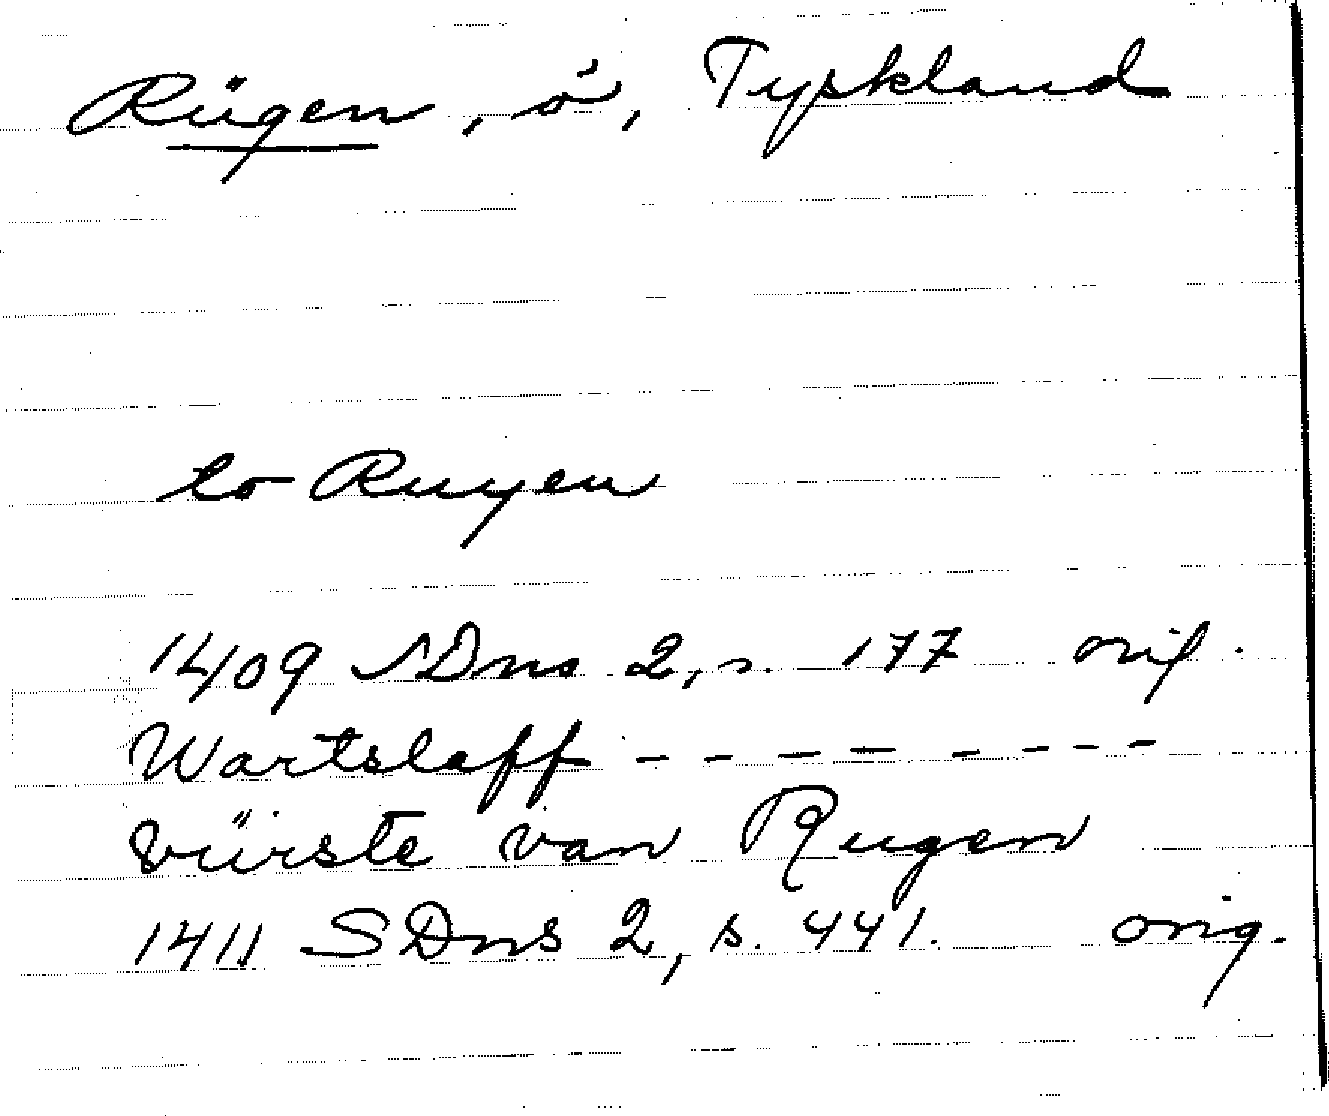 Rügen, ö, Tyskland
to Ruyen
1409 SDns 2, s. 177 orig.
Wartslaff - - - - - - - -
vürste van Rugen
1411 SDns 2, s. 441. orig.